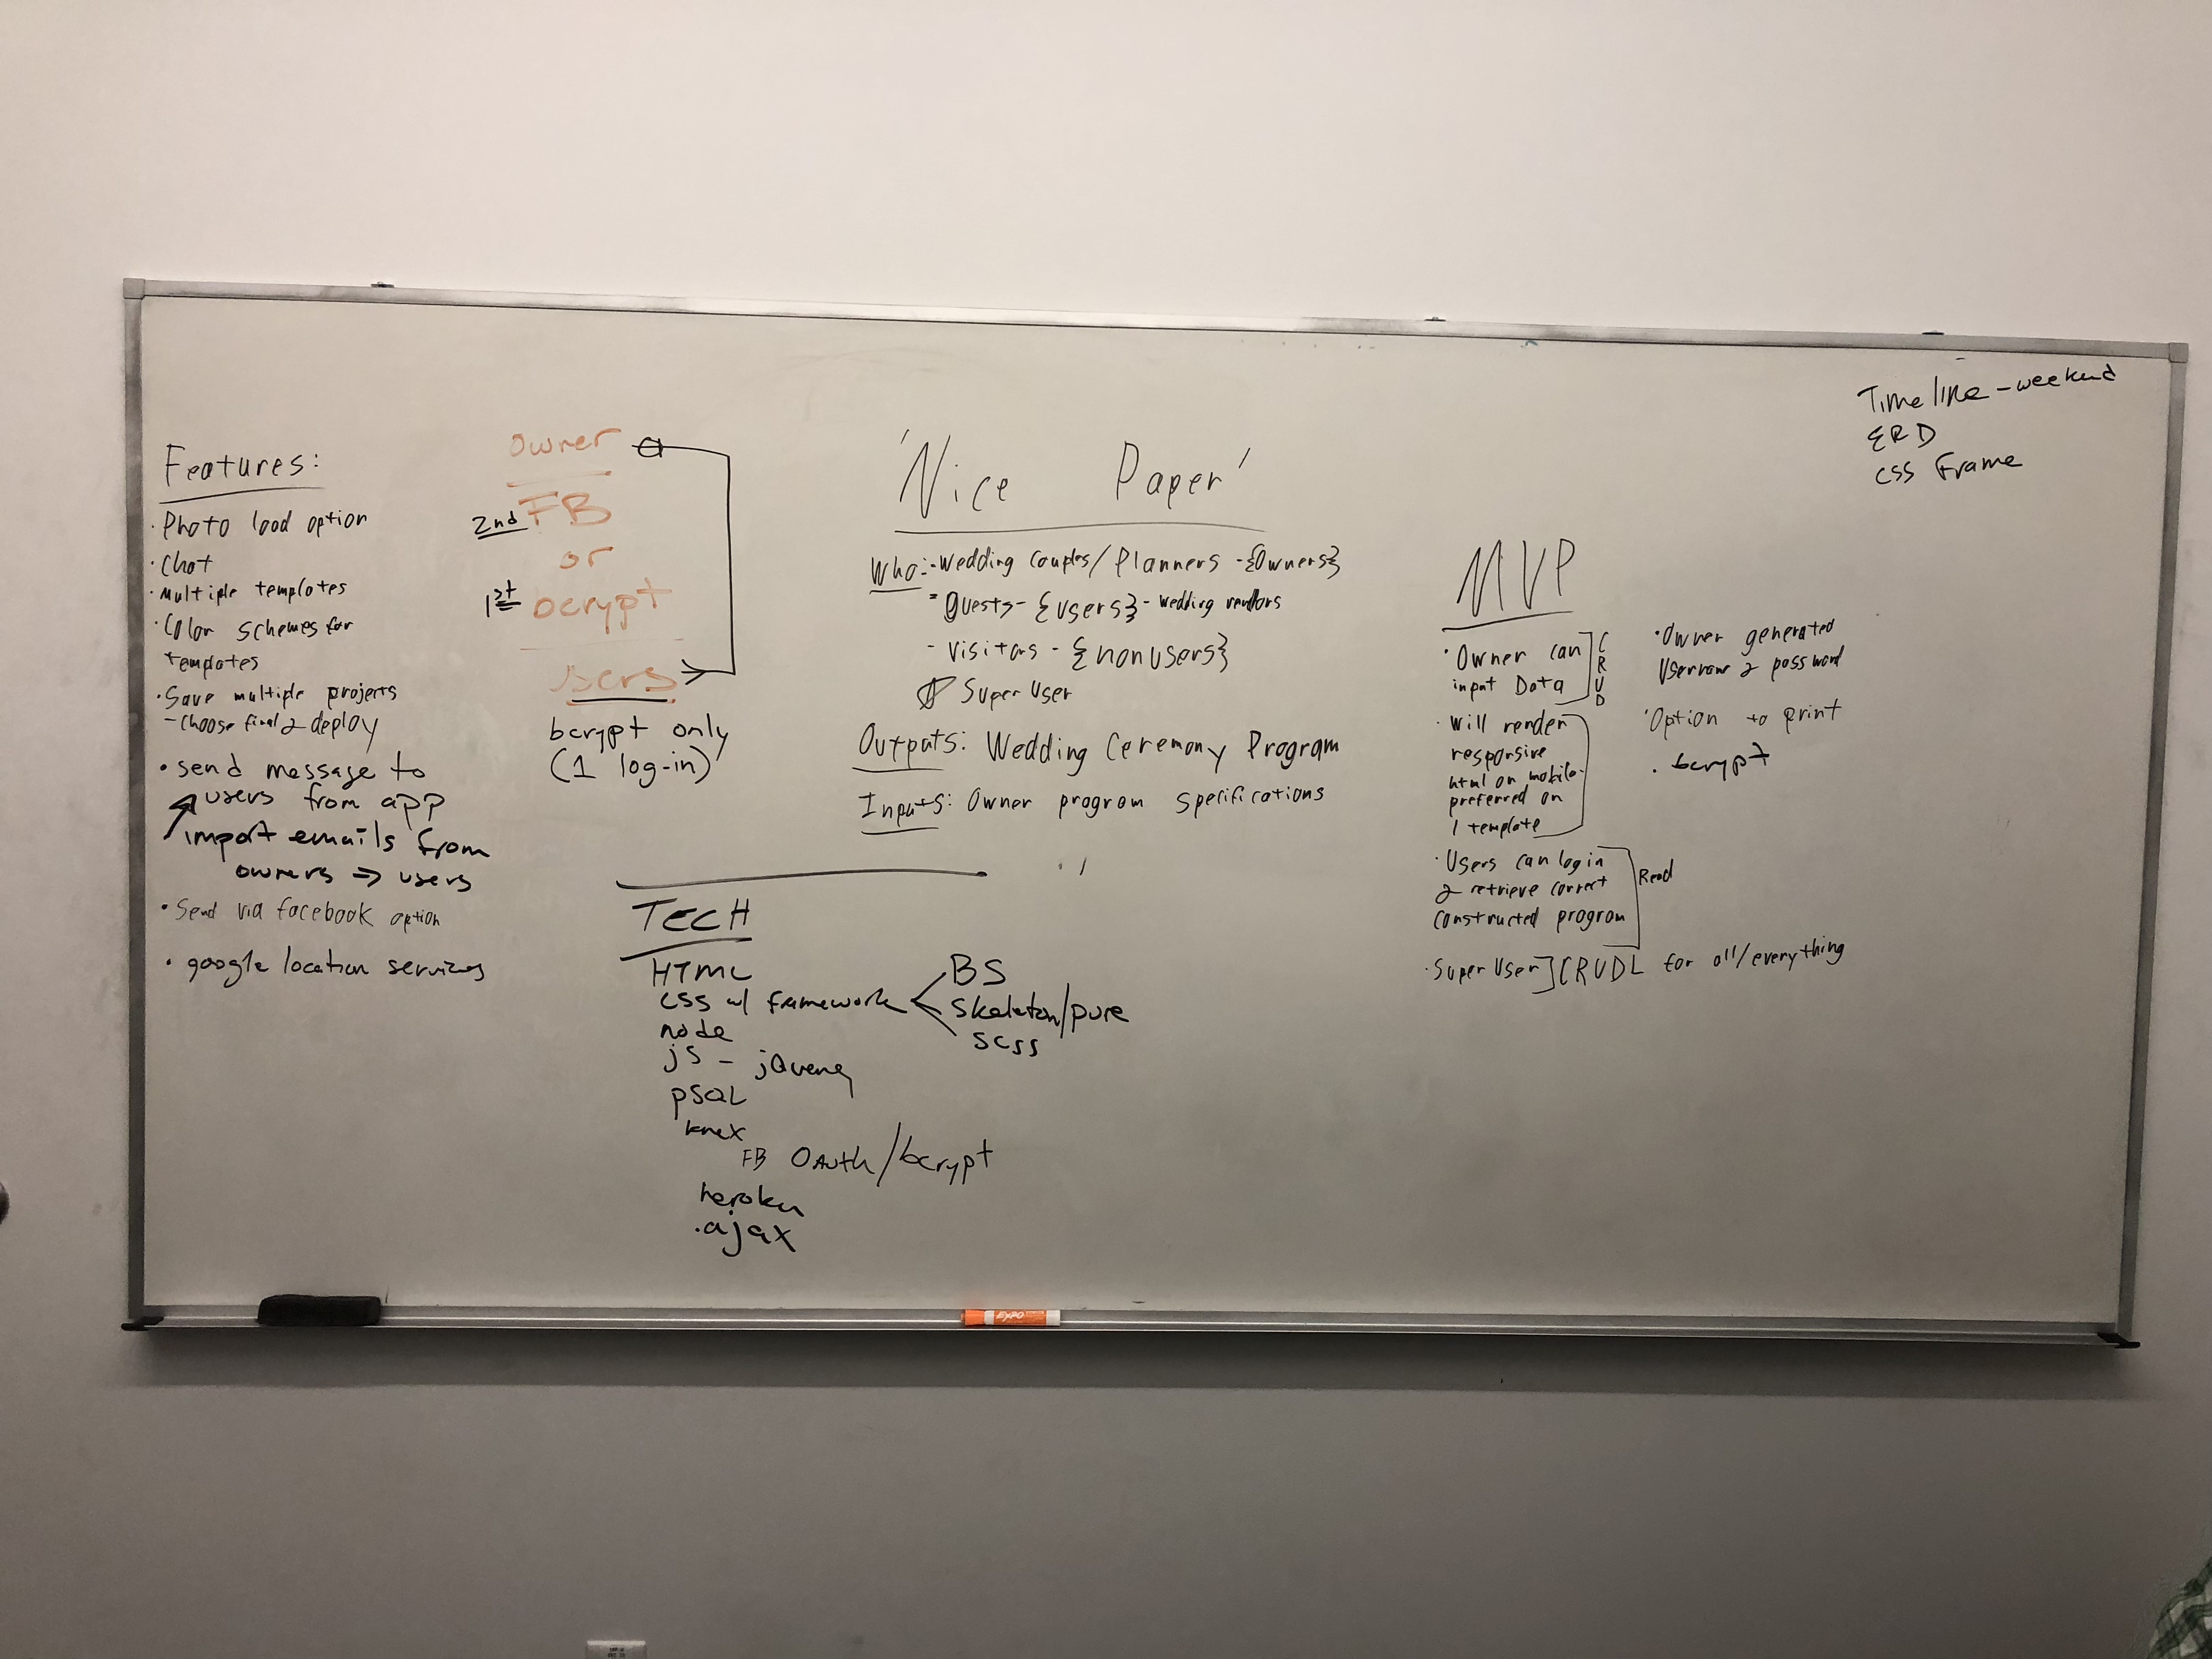 Features:
· Photo load option
· Chat
· Multiple templates
· Color schemes for
templates
· Save multiple projects
- Choose final & deploy
· send message to
users from app
import emails from
owners → users
· Send via facebook option
· google location services
owner
2nd FB
or
1st bcrypt
Users
bcrypt only
(1 log-in)
'Nice Paper'
Who: - Wedding Couples/Planners - {Owners}
- guests - {users} - wedding vendors
- Visitors - {nonusers}
Super User
Outputs: Wedding Ceremony Program
Inputs: Owner program specifications
TECH
HTML
CSS w/ framework < BS
Skeleton/pure
SCSS
node
js - jQuery
psQL
knex
FB OAuth/bcrypt
heroku
.ajax
Timeline - weekend
ERD
CSS Frame
MVP
· Owner can
input Data
CRUD
· Will render
responsive
html on mobile-
preferred on
1 template
· Users can login
& retrieve correct
constructed program
Read
· Super User] CRUDL for all/everything
· Owner generated
Username & password
· Option to print
· bcrypt
EXPO